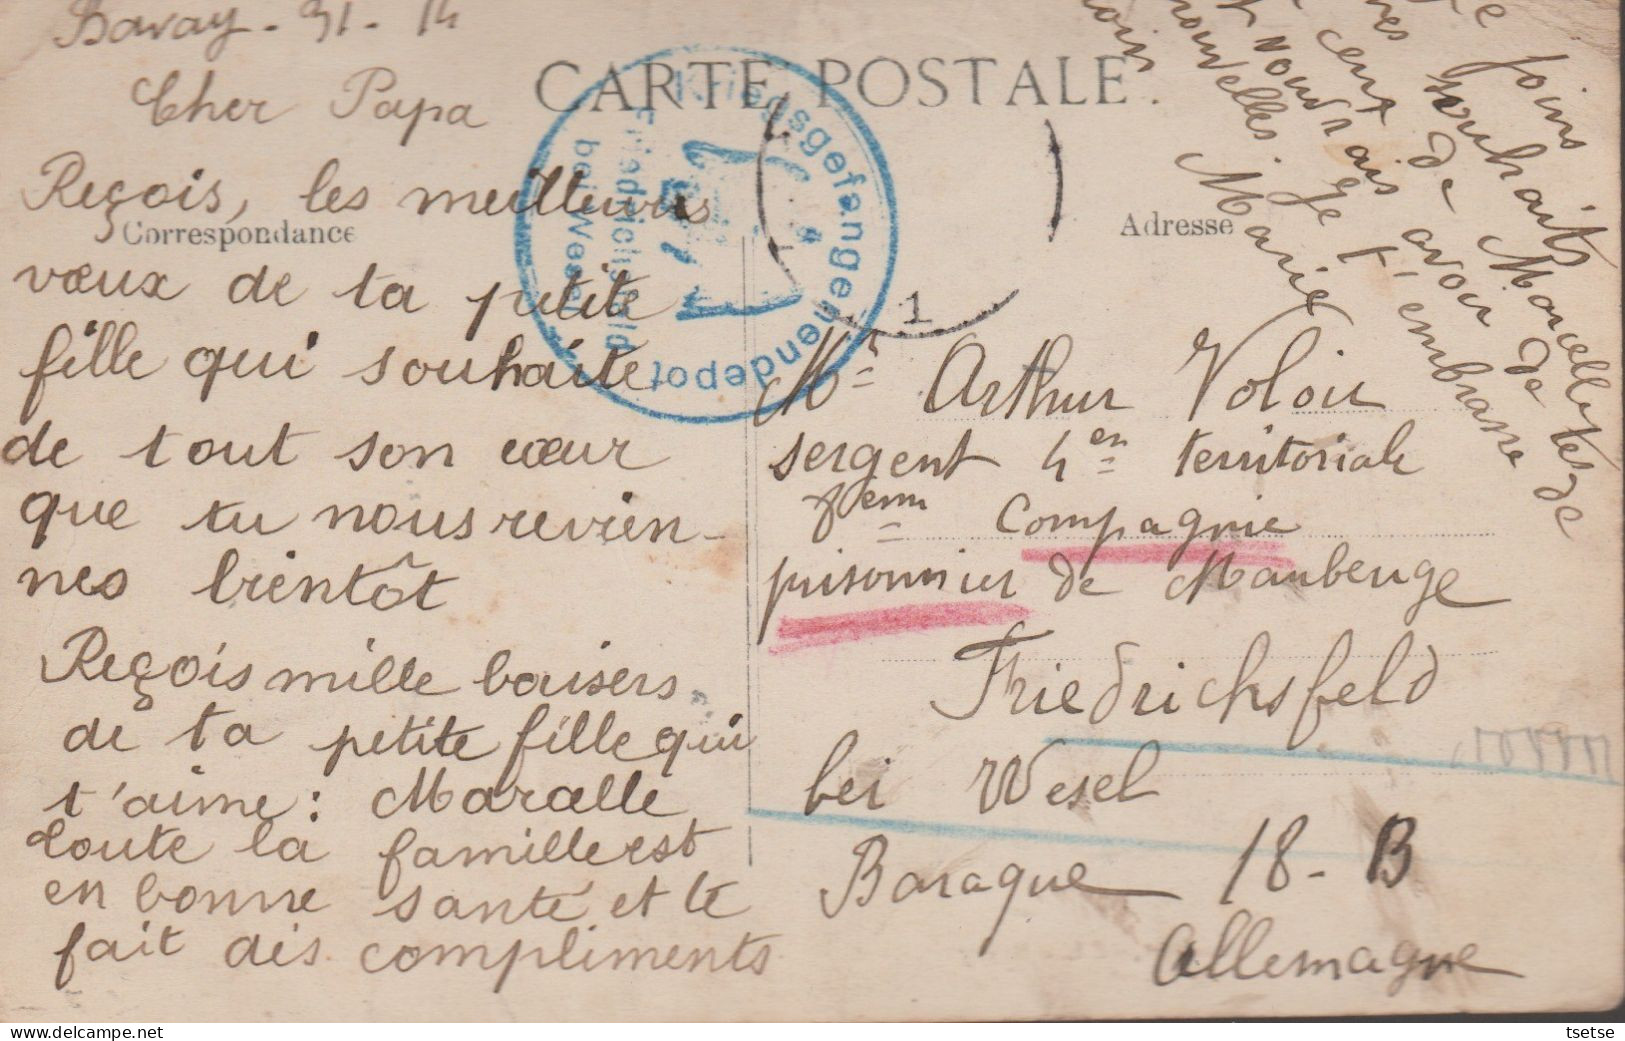 Bavay - 31 - 12
Cher Papa
CARTE POSTALE.
Reçois, les meilleurs
Correspondance
vœux de ta petite
fille qui souhaite
de tout son cœur
que tu nous revien-
nes bientôt
Reçois mille baisers
de ta petite fille qui
t'aime : Marcelle
toute la famille est
en bonne santé et te
fait dis compliments
Kriegsgefangenendepot
Friedrichsfeld
bei Wesel
1
Adresse
Mr Arthur Voloir
sergent 4en territoriale
8eme Compagnie
prisonnier de Maubeuge
Friedrichsfeld
bei Wesel
Baraque 18 - B
Allemagne
Je joins
souhaits de Marcelle
de avoir de
nouvelles. Je t'embrasse
Marie
tsetse